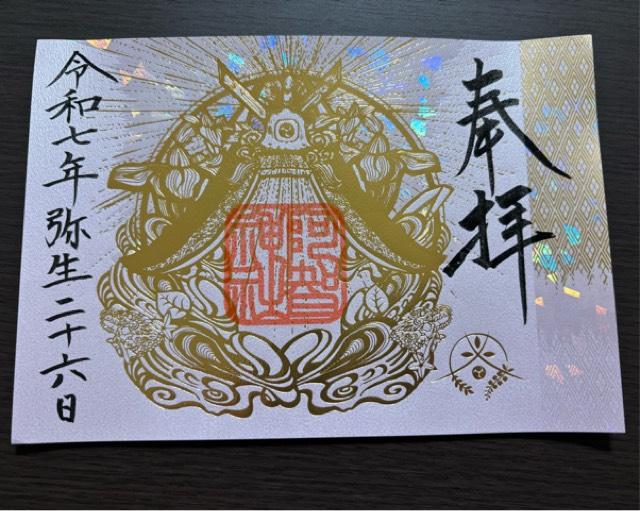 奉拝
阿智神社
令和七年弥生二十六日